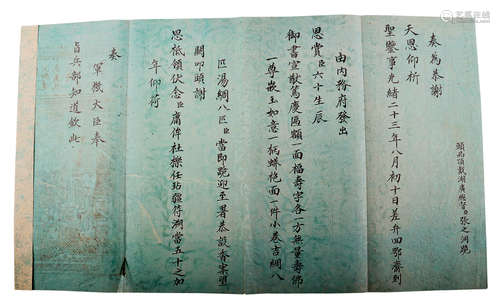 頭品頂戴湖廣總督臣張之洞跪
奏為恭謝
天恩仰祈
聖鑒事光緒二十三年八月初十日差弁回鄂齎到
由內務府發出
恩賞臣六十生辰
御書宣猷篤慶匾額一面福壽字各一方無量壽佛
一尊嵌玉如意一柄蟒袍面一件小卷吉綢八
匹湯綢八匹臣當即跪迎至署恭設香案望
闕叩頭謝
恩祗領伏念臣庸俾杜擽任玷疆符溯當五十之加
年仰荷
奏
軍機大臣奉
旨兵部知道欽此